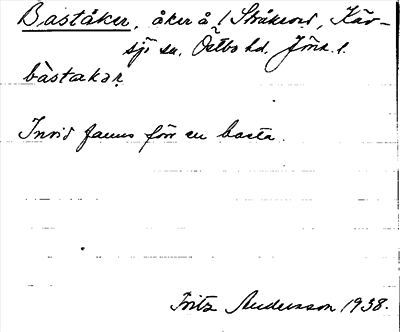 Baståker, åker å 1 Stråkeved, Käv-
sjö sn, Östbo hd, Jönk. l.
bàstakar
Invid fanns förr en basta.
Fritz Andersson 1938.